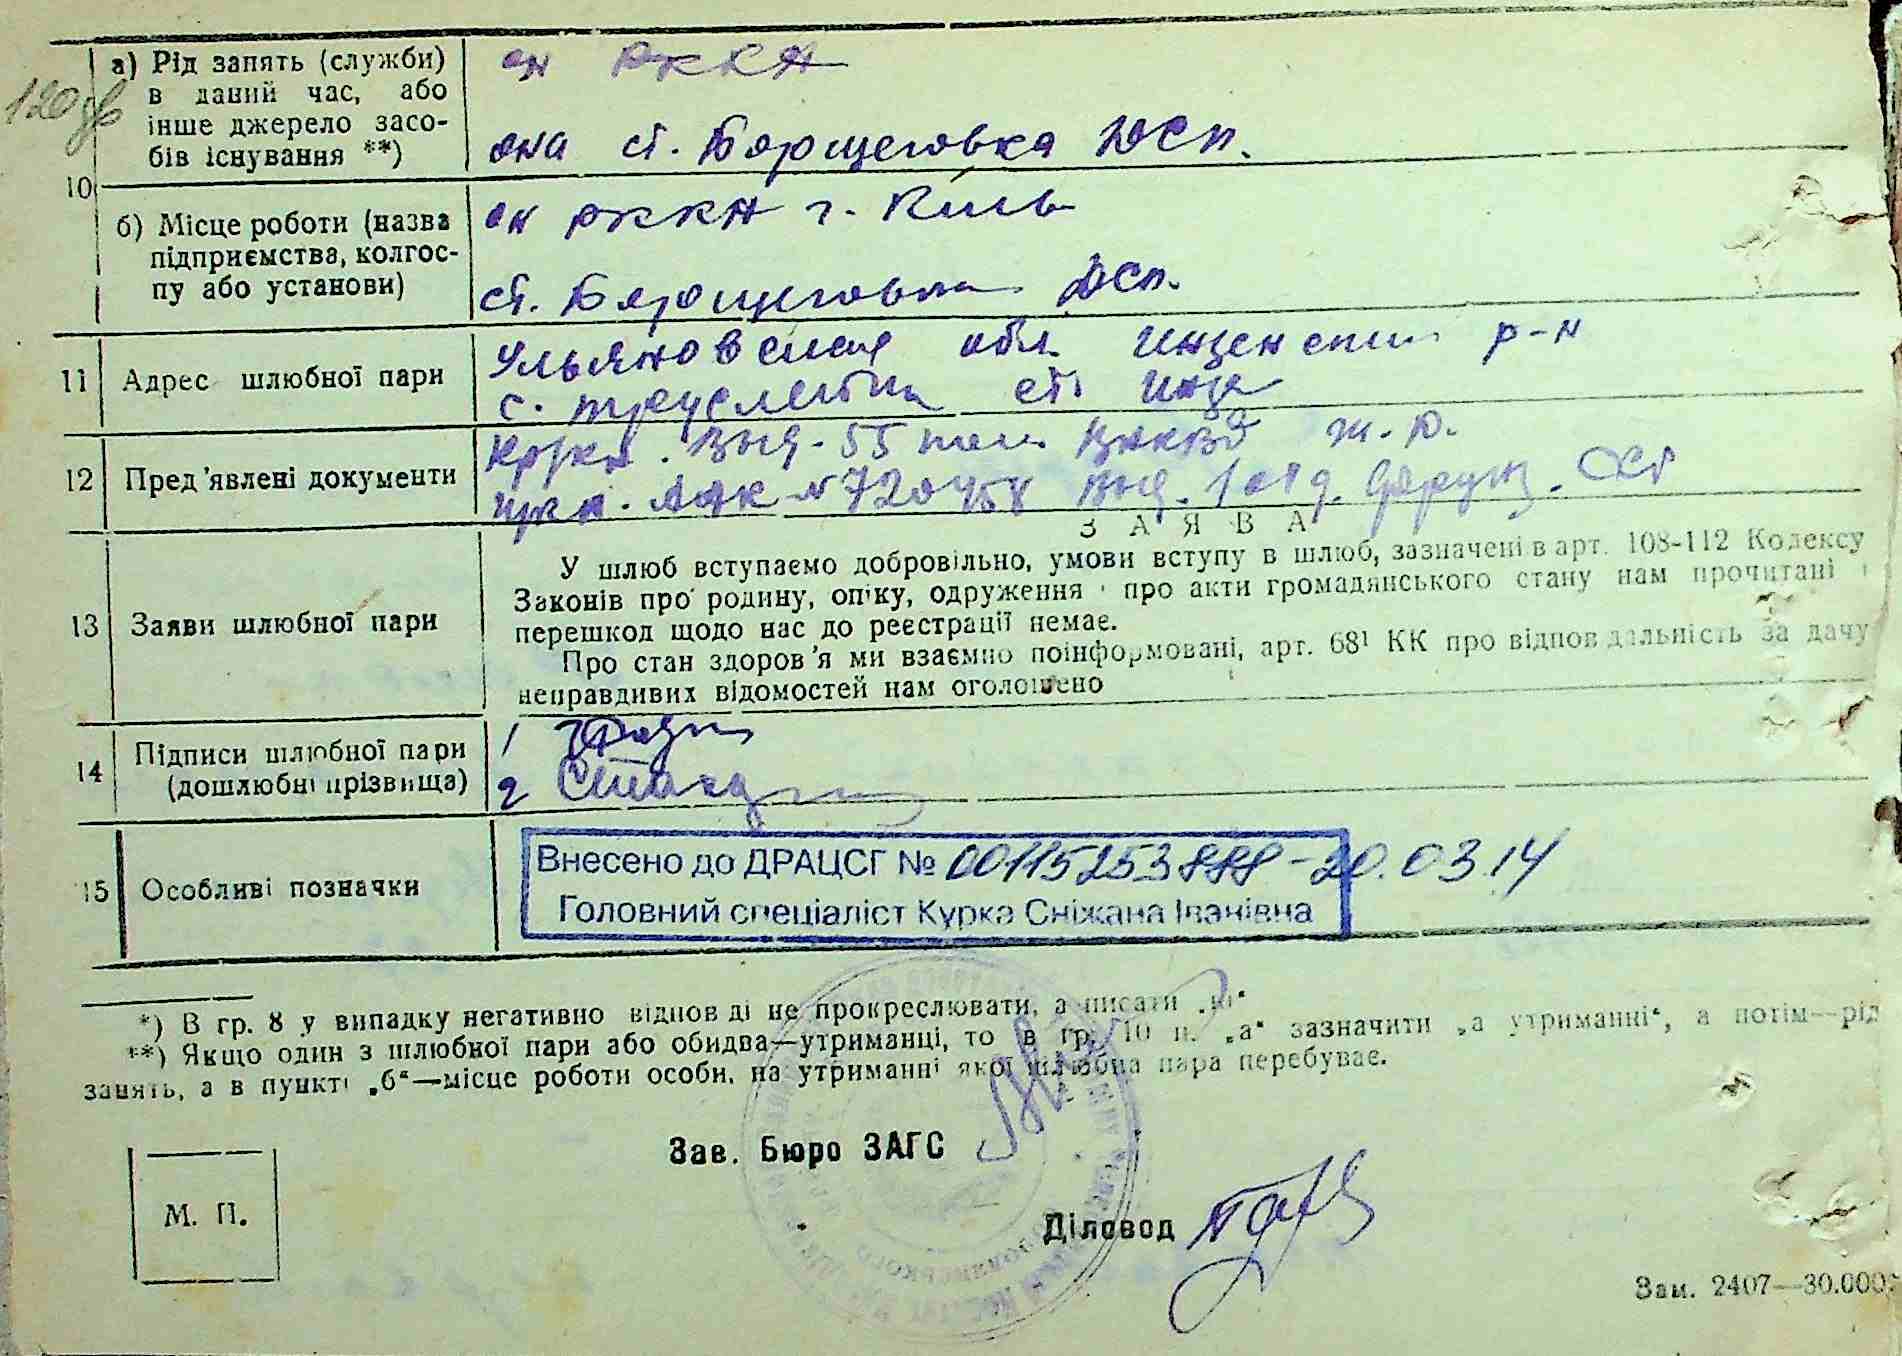 120
10
а) Рід занять (служби)
в даний час, або
інше джерело засо-
бів існування **)
он РККА
она ст. Борщеговка ЮСп.
б) Місце роботи (назва
підприємства, колгос-
пу або установи)
он РККА г. Київ
ст. Борщеговка ЮСп.
11 Адрес шлюбної пари
Ульяновская обл. Инзенский р-н
с. ст. Инза
12 Пред'явлені документи
выд. 55 ж. д.
№ 720458 выд. 1 отд.
ЗАЯВА
13 Заяви шлюбної пари
У шлюб вступаємо добровільно, умови вступу в шлюб, зазначені в арт. 108-112 Кодексу
Законів про родину, опіку, одруження і про акти громадянського стану нам прочитані і
перешкод щодо нас до реєстрації немає.
Про стан здоров'я ми взаємно поінформовані, арт. 68¹ КК про відповідальність за дачу
неправдивих відомостей нам оголошено
14 Підписи шлюбної пари
(дошлюбні прізвища)
1
2
15 Особливі позначки
Внесено до ДРАЦСГ № 00115253888 - 20.03.14
Головний спеціаліст Курка Сніжана Іванівна
*) В гр. 8 у випадку негативної відповіді не прокреслювати, а писати „ні“
**) Якщо один з шлюбної пари або обидва—утриманці, то в гр. 10 п. „а“ зазначити „на утриманні“, а потім—рід
занять, а в пункті „б“—місце роботи особи, на утриманні якої шлюбна пара перебуває.
Зав. Бюро ЗАГС
М. П.
Діловод
Зам. 2407—30.000